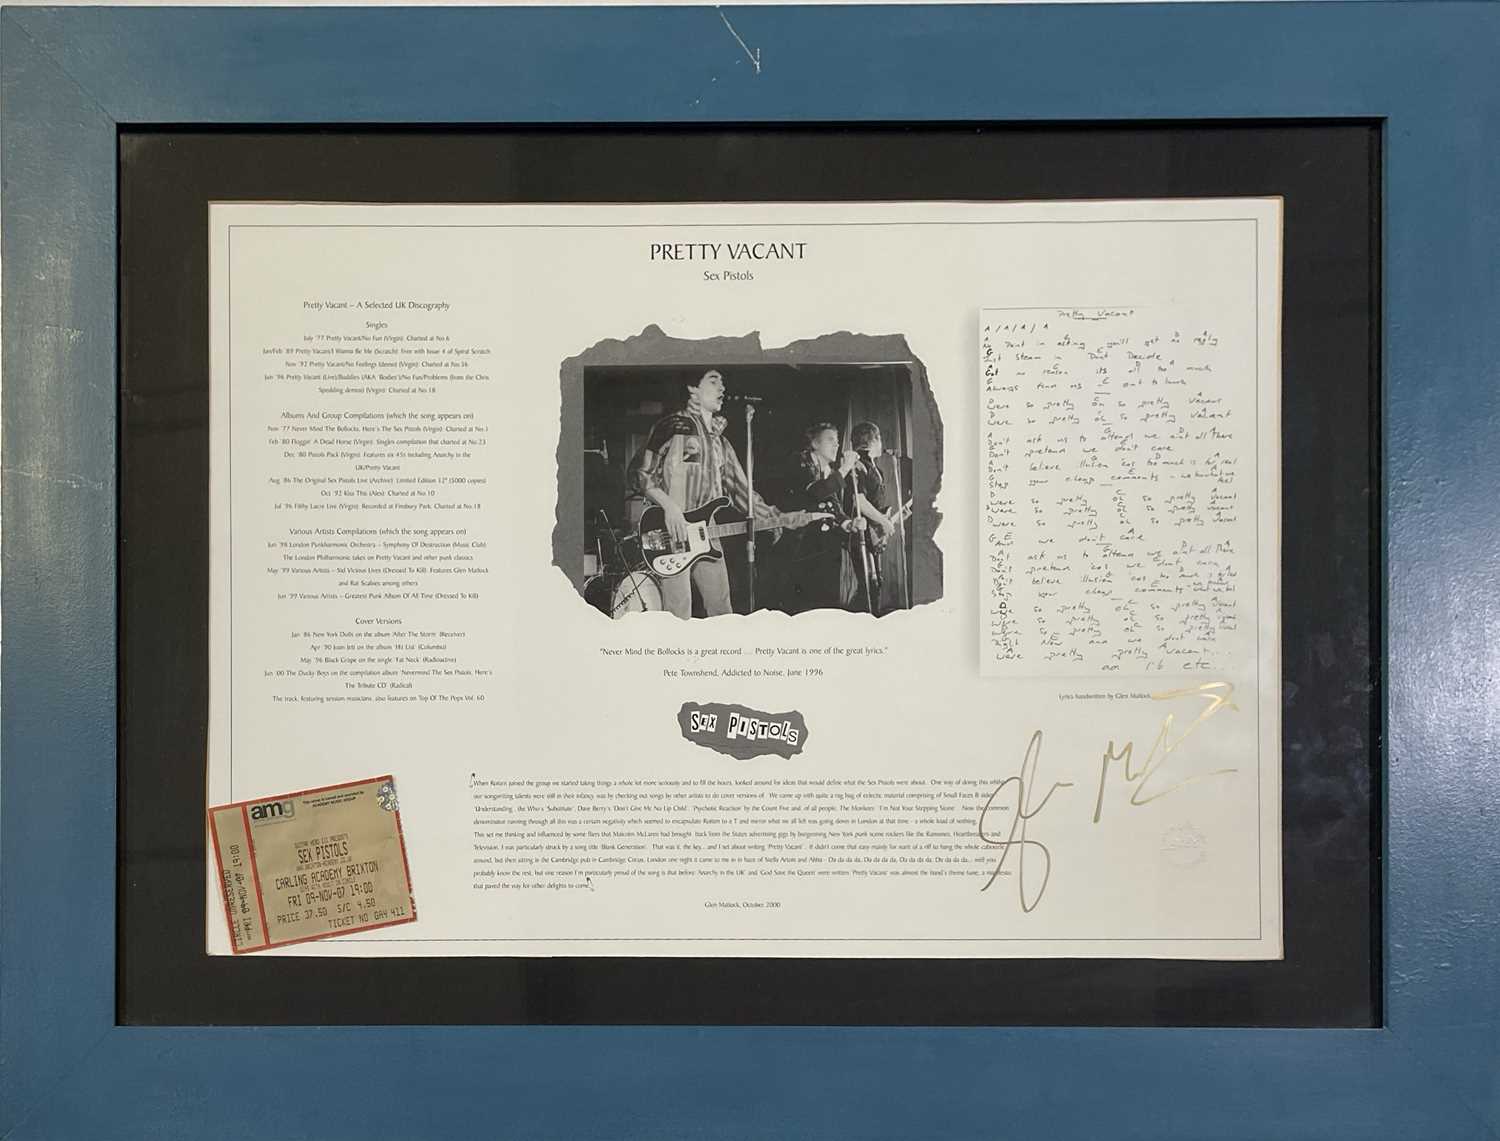 PRETTY VACANT
Sex Pistols
Pretty Vacant – A Selected UK Discography
Singles
July '77 Pretty Vacant/No Fun (Virgin): Charted at No.6
Jan/Feb '89 Pretty Vacant/I Wanna Be Me (Scratch): Free with Issue 4 of Spiral Scratch
Nov '92 Pretty Vacant/No Feelings (demo) (Virgin): Charted at No.56
Jun '96 Pretty Vacant (Live)/Buddies (AKA 'Bodies')/No Fun/Problems (from the Chris
Spedding demos) (Virgin): Charted at No.18
Albums And Group Compilations (which the song appears on)
Nov '77 Never Mind The Bollocks, Here's The Sex Pistols (Virgin): Charted at No.1
Feb '80 Floggin' A Dead Horse (Virgin): Singles compilation that charted at No.23
Dec '80 Pistols Pack (Virgin): Features six 45s including Anarchy in the
UK/Pretty Vacant
Aug '86 The Original Sex Pistols Live (Archive): Limited Edition 12" (5000 copies)
Oct '92 Kiss This (Alex): Charted at No.10
Jul '96 Filthy Lucre Live (Virgin): Recorded at Finsbury Park. Charted at No.18
Various Artists Compilations (which the song appears on)
Jun '98 London Punkharmonic Orchestra – Symphony Of Destruction (Music Club)
The London Philharmonic takes on Pretty Vacant and other punk classics
May '99 Various Artists – Sid Vicious Lives (Dressed To Kill). Features Glen Matlock
and Rat Scabies among others
Jun '99 Various Artists – Greatest Punk Album Of All Time (Dressed To Kill)
Cover Versions
Jan '86 New York Dolls on the album 'After The Storm' (Receiver)
Apr '90 Joan Jett on the album 'Hit List' (Columbia)
May '96 Black Grape on the single 'Fat Neck' (Radioactive)
Jun '00 The Ducky Boys on the compilation 'Nevermind The Sex Pistols, Here's
The Tribute CD' (Radical)
The track, featuring session musicians, also features on Top Of The Pops Vol. 60
"Never Mind the Bollocks is a great record ... Pretty Vacant is one of the great lyrics."
Pete Townshend, Addicted to Noise, June 1996
SEX PISTOLS
Pretty Vacant
A / A / A / A
No Point in asking you'll get no reply
Just Steam in Dont Decide
Got no reason its all too much
Always find us out to lunch
were so pretty oh so pretty Vacant
were so pretty oh so pretty Vacant
Don't ask us to attend we aint all there
Don't pretend we don't care
Don't believe illusion 'cos too much is for real
Stop your cheap comments - we know what we feel
were so pretty oh so pretty Vacant
were so pretty oh so pretty vacant
were so pretty oh so pretty Vacant
And we don't care
Dont ask us to attend we aint all There
Dont pretend 'cos we dont care
Don't believe illusion 'cos too much is for real
Stop your cheap comments
were so pretty oh so pretty Vacant
were so pretty oh so pretty
were so pretty oh so pretty
Right Now and we dont care
were pretty pretty vacant...
an 1'6 etc...
Lyrics handwritten by Glen Matlock
When Rotten joined the group we started taking things a whole lot more seriously and to fill the hours, looked around for ideas that would define what the Sex Pistols were about. One way of doing this whilst
our songwriting talents were still in their infancy was by checking out songs by other artists to do cover versions of. We came up with quite a rag bag of eclectic material comprising of Small Faces B sides
'Understanding', the Who's 'Substitute', Dave Berry's 'Don't Give Me No Lip Child', 'Psychotic Reaction' by the Count Five and, of all people, The Monkees' 'I'm Not Your Stepping Stone'. Now the common
denominator running through all this was a certain negativity which seemed to encapsulate Rotten to a T and mirror what we all felt was going down in London at that time - a whole load of nothing.
This set me thinking and influenced by some fliers that Malcolm McLaren had brought back from the States advertising gigs by burgeoning New York punk scene rockers like the Ramones, Heartbreakers and
Television, I was particularly struck by a song title 'Blank Generation'. That was it, the key... and I set about writing 'Pretty Vacant'. It didn't come that easy mainly for want of a riff to hang the whole caboodle
around, but then sitting in the Cambridge pub in Cambridge Circus, London one night it came to me in a haze of Stella Artois and Abba - Da da da da, Da da da da, Da da da da, De da da da... well you
probably know the rest, but one reason I'm particularly proud of the song is that before 'Anarchy in the UK' and 'God Save the Queen' were written 'Pretty Vacant' was almost the band's theme tune, a manifesto
that paved the way for other delights to come.
Glen Matlock, October 2000
amg
ACADEMY MUSIC GROUP
SEX PISTOLS
CARLING ACADEMY BRIXTON
FRI 09-NOV-07 19:00
PRICE 37.50 S/C 4.50
TICKET NO GAY 411
CIRCLE UNRESERVED